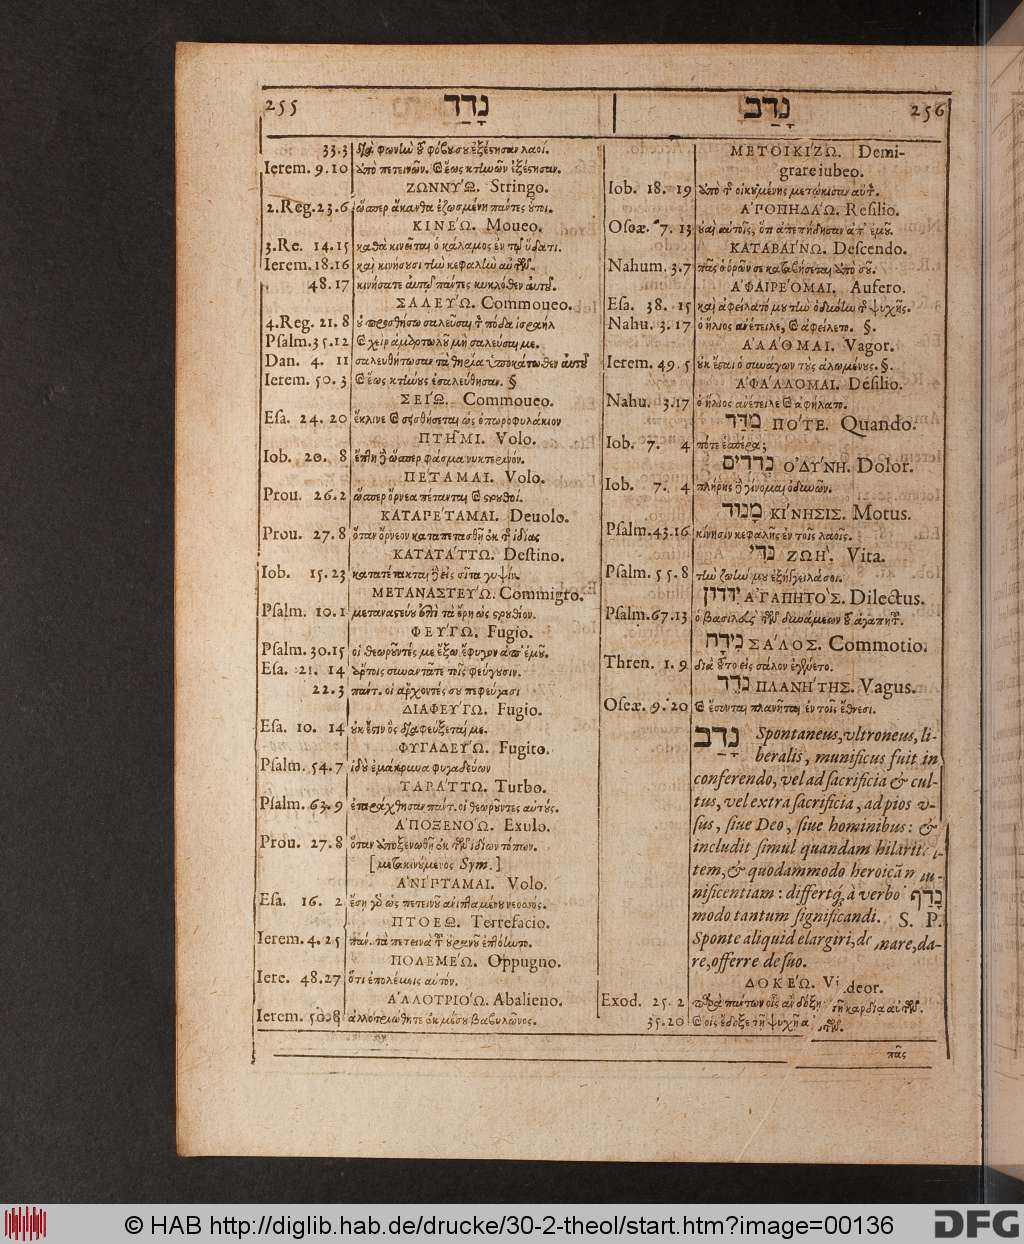 255 נָדַד
33.3 διὰ φωνὴν τ φόβου σου ἐξέστησαν λαοί.
Ierem. 9.10 ὑπὸ πετεινῶν. ἕως κτηνῶν ἐξέστησαν.
ΖΩΝΝΥΏ. Stringo.
2.Reg.23.6 ὥσπερ ἄκανθα ἐζωσμένη πάντες ὗτοι.
ΚΙΝΕΏ. Moueo.
3.Re. 14.15 καθὰ κινεῖται ὁ κάλαμος ἐν τῷ ὕδατι.
Ierem.18.16 καὶ κινήσουσι τὴν κεφαλὴν αὐτῶν.
48.17 κινήσατε αὐτῷ πάντες κυκλόθεν αὐτοῦ.
ΣΑΛΕΥΏ. Commoueo.
4.Reg. 21. 8 οὐ προσθήσω σαλεῦσαι τ πόδα ἰσραὴλ
Psalm.35.12 χεὶρ ἁμαρτωλοῦ μὴ σαλεύσαι με.
Dan. 4. 11 σαλευθήτωσαν τὰ θηρία ὑποκάτωθεν αὐτοῦ
Ierem. 50. 3 ἕως κτήνους ἐσαλεύθησαν. §
ΣΕΙΏ. Commoueo.
Esa. 24. 20 ἔκλινε σεισθήσεται ὡς ὀπωροφυλάκιον
ΠΤΗ͂ΜΙ. Volo.
Iob. 20. 8 ἔπτη ὥσπερ φάσμα νυκτερινόν.
ΠΕΤΑΜΑΙ. Volo.
Prou. 26.2 ὥσπερ ὄρνεα πέτανται στρουθοί.
ΚΑΤΑΠΕΤΑΜΑΙ. Deuolo.
Prou. 27.8 ὅταν ὄρνεον καταπετασθῇ ἐκ τ ἰδίας
ΚΑΤΑΤΆΤΤΩ. Destino.
Iob. 15.23 κατατέτακται εἰς σῖτα γυψίν.
ΜΕΤΑΝΑΣΤΕΥΏ. Commigro.
Psalm. 10.1 μεταναστεύου ἐπὶ τὰ ὄρη ὡς στρουθίον.
ΦΕΥΓΩ. Fugio.
Psalm. 30.15 οἱ θεωροῦντές με ἔξω, ἔφυγον ἀπ' ἐμοῦ.
Esa. 21. 14 ἄρτοις συναντᾶτε τοῖς φεύγουσιν.
22.3 πάντ. οἱ ἄρχοντές σου πεφεύγασι
ΔΙΑΦΕΥΓΩ. Fugio.
Esa. 10. 14 οὐκ ἔστιν ὃς διαφεύξεταί με.
ΦΥΓΑΔΕΥΏ. Fugito.
Psalm. 54.7 ἰδοὺ ἐμάκρυνα φυγαδεύων
ΤΑΡΆΤΤΩ. Turbo.
Psalm. 63. 9 ἐταράχθησαν πάντ. οἱ θεωροῦντες αὐτούς.
ΑΠΟΞΕΝΟΏ. Exulo.
Prou. 27.8 ὅταν ἀποξενωθῇ ἐκ τῶν ἰδίων τόπων.
[μετακινούμενος Sym.]
ΑΝΙΠΤΑΜΑΙ. Volo.
Esa. 16. 2 ἔσῃ γὸ ὡς πετεινοῦ ἀνιπταμένου νεοσσός.
ΠΤΟΕΩ. Terrefacio.
Ierem. 4. 25 πάν. τὰ πετεινὰ τ οὐρανοῦ ἐπτόειτο.
ΠΟΛΕΜΕΏ. Oppugno.
Iere. 48.27 ὅτι ἐπολέμεις αὐτόν.
ΑΛΛΟΤΡΙΟΏ. Abalieno.
Ierem. 50.8 ἀλλοτριώθητε ἐκ μέσου βαβυλῶνος.
נָדַב 256
ΜΕΤΟΙΚΙΖΩ. Demi-
grare iubeo.
Iob. 18. 19 ὑπὸ τ οἰκουμένης μετῴκισαν αὐτ.
ΑΠΟΠΗΔΑΏ. Resilio.
Oseæ. 7. 13 οὐαὶ αὐτοῖς, ὅτι ἀπεπήδησαν ἀπ' ἐμοῦ.
ΚΑΤΑΒΑΙΝΩ. Descendo.
Nahum. 3.7 πᾶς ὁ ὁρῶν σε καταβήσεται ἀπὸ σοῦ.
ΑΦΑΙΡΕΌΜΑΙ. Aufero.
Esa. 38. 15 καὶ ἀφείλατό μου τὴν ὀδύνην τ ψυχῆς.
Nahu. 3. 17 ὁ ἥλιος ἀνέτειλε, ἀφείλετο. §.
ΑΛΑΟΜΑΙ. Vagor.
Ierem. 49. 5 οὐκ ἔσται ὁ συνάγων τοὺς ἀλωμένους. §.
ΑΦΑΛΛΟΜΑΙ. Desilio.
Nahu. 3.17 ὁ ἥλιος ἀνέτειλε ἀφήλατο.
מִדַּד ΠΟΤΕ. Quando.
Iob. 7. 4 πότε ἑσπέρα;
נְדֻדִים ΟΔΥΝΗ. Dolor.
Iob. 7. 4 πλήρης γίνομαι ὀδυνῶν.
מָנוֹד ΚΙΝΗΣΙΣ. Motus.
Psalm.43.16 κίνησιν κεφαλῆς ἐν τοῖς λαοῖς.
נֹדִי ΖΩΗ. Vita.
Psalm. 55.8 τὴν ζωήν μου ἐξήγγειλά σοι.
יִדֹּדוּן ΑΓΑΠΗΤΟΣ. Dilectus.
Psalm.67.13 ὁ βασιλεὺς τῶν δυνάμεων τ ἀγαπητ.
נִידָה ΣΑΛΟΣ. Commotio.
Thren. 1. 9 διὰ τοῦτο εἰς σάλον ἐγένετο.
נֹדֵד ΠΛΑΝΗΤΗΣ. Vagus.
Oseæ. 9. 20 ἔσονται πλανῆται ἐν τοῖς ἔθνεσι.
נָדַב Spontaneus, vltroneus, li-
beralis, munificus fuit in
conferendo, vel ad sacrificia & cul-
tus, vel extra sacrificia, ad pios v-
sus, siue Deo, siue hominibus: &
includit simul quandam hilarita-
tem, & quodammodo heroicam mu-
nificentiam: differtq́; à verbo נָדַף
modo tantum significandi. S. P.
Sponte aliquid elargiri, donare, da-
re, offerre de suo.
ΔΟΚΕΏ. Videor.
Exod. 25. 2 παρὰ πάντων οἷς ἂν δόξῃ τῇ καρδίᾳ αὐτῶν.
35.20 οἷς ἔδοξε τῇ ψυχῇ αὐτῶν.
πᾶς
© HAB http://diglib.hab.de/drucke/30-2-theol/start.htm?image=00136
DFG